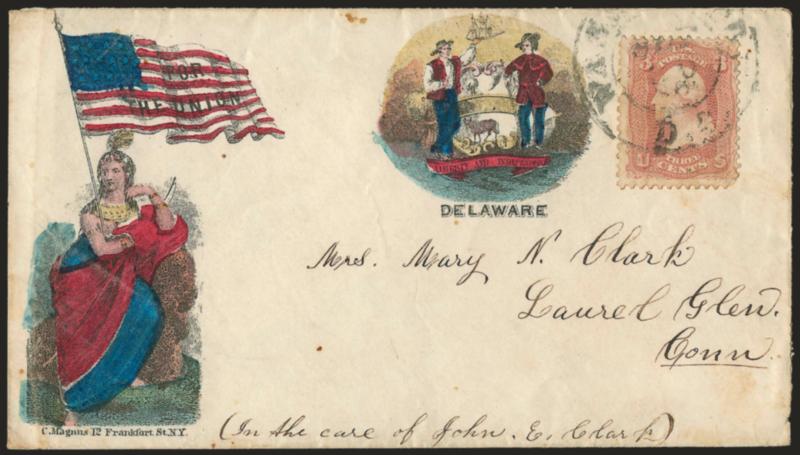 FOR
THE UNION
LIBERTY AND INDEPENDENCE
DELAWARE
U.S.
POSTAGE
THREE
CENTS
U S
Mrs. Mary N. Clark
Laurel Glen.
Conn
(In the care of John. E. Clark)
C. Magnus 12 Frankfort St. N.Y.